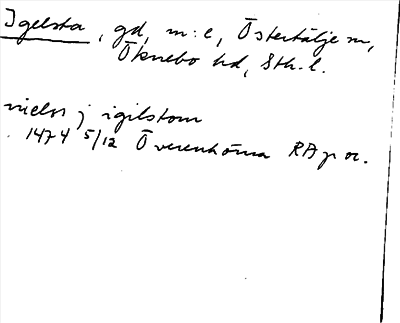 Igelsta, gd, m:e, Östertälje m,
Öknebo hd, Sth. l.
nielss j igilstom
1474 5/12 Överenhörna RA p or.